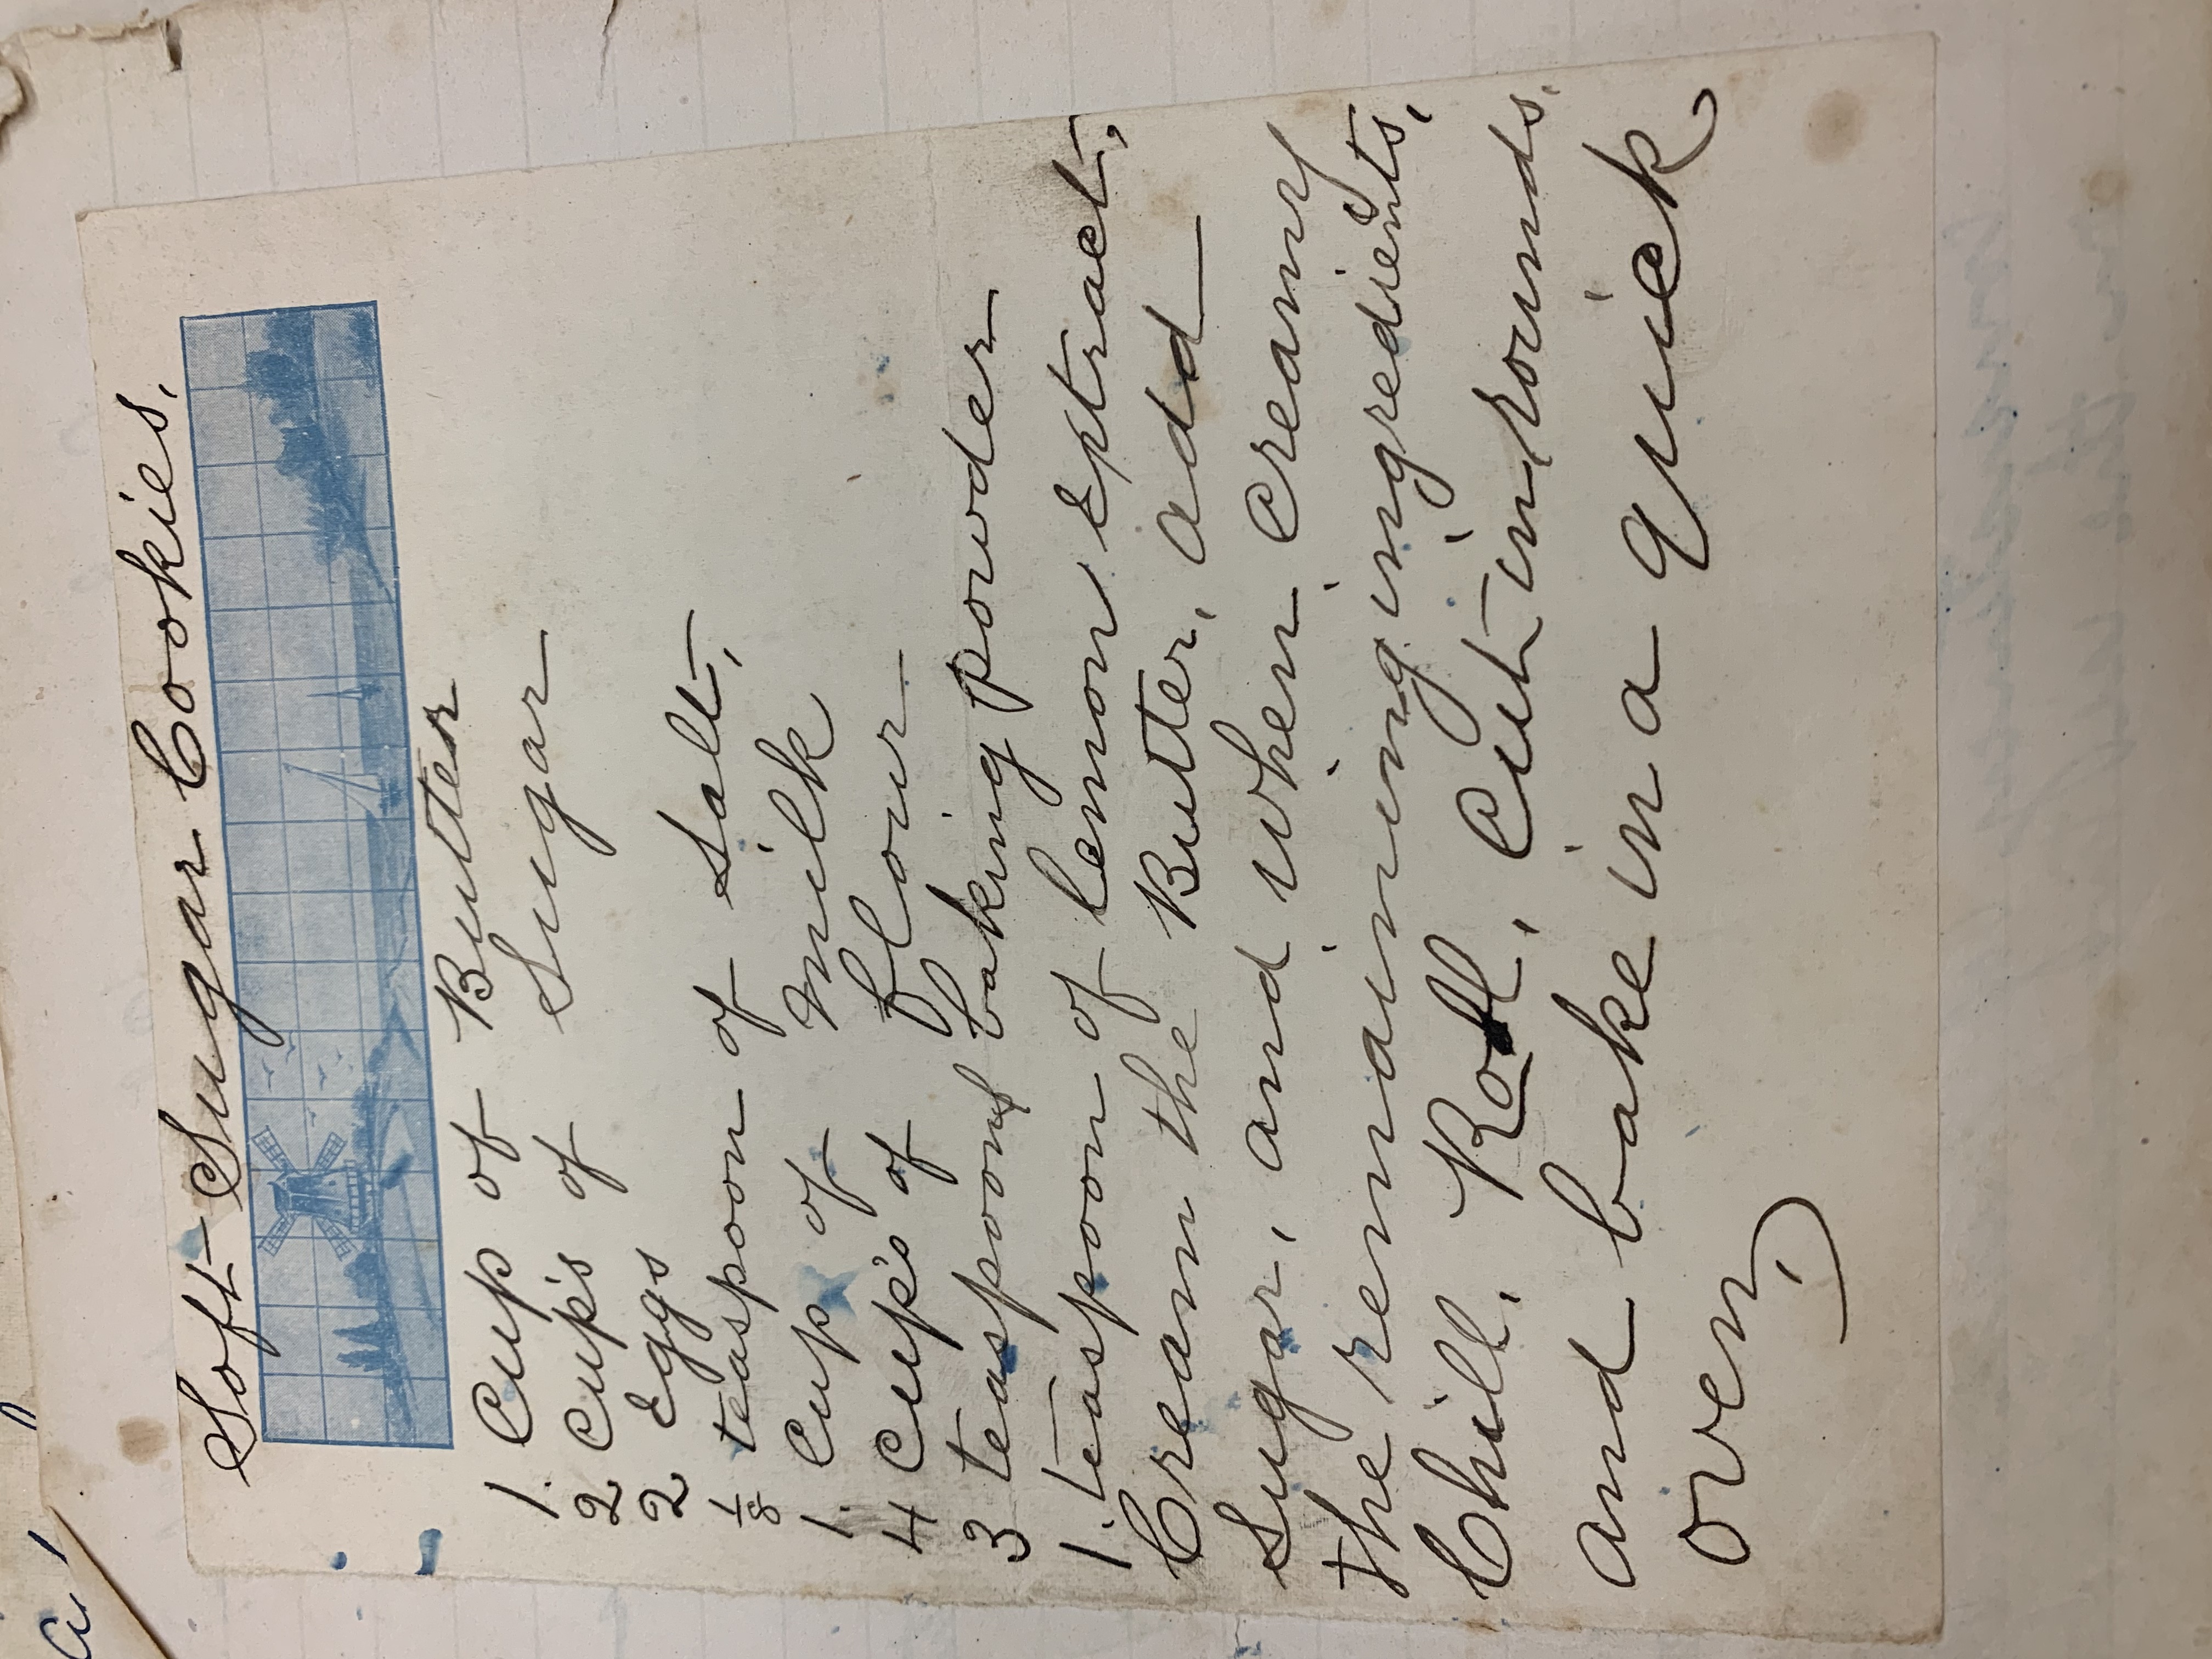 Soft Sugar Cookies,
1. Cup of Butter
2 Cup's of Sugar
2 Eggs
1/8 teaspoon of Salt,
1. Cup of milk
4 Cup's of flour
3 teaspoons baking powder
1. teaspoon of lemon Extract,
Cream the Butter, add
Sugar, and when Creamy
the remaining ingredients,
Chill, Roll, Cut in rounds,
and bake in a quick
oven,